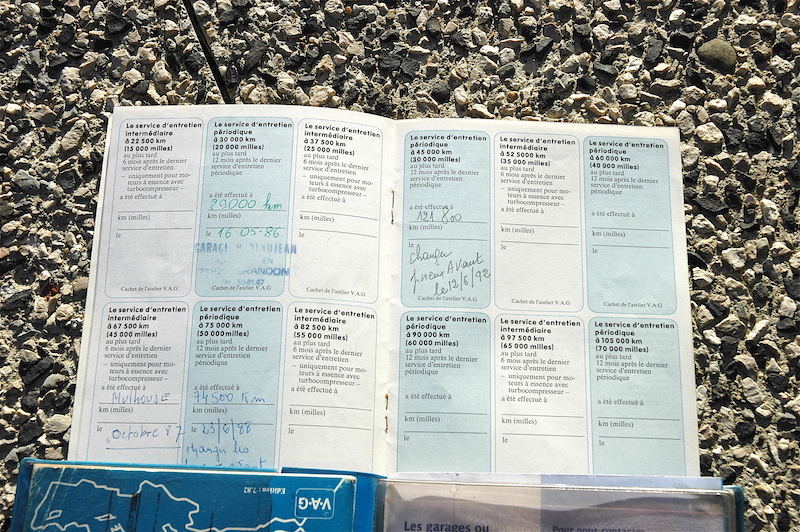 Le service d'entretien
intermédiaire
à 22 500 km
(15 000 milles)
au plus tard
6 mois après le dernier
service d'entretien
– uniquement pour mo-
teurs à essence avec
turbocompresseur –
a été effectué à
km (milles)
le
Cachet de l'atelier V.A.G
Le service d'entretien
périodique
à 30 000 km
(20 000 milles)
au plus tard
12 mois après le dernier
service d'entretien
périodique
a été effectué à
29000 km
km (milles)
le 16-05-86.
GARAGE
Le service d'entretien
intermédiaire
à 37 500 km
(25 000 milles)
au plus tard
6 mois après le dernier
service d'entretien
– uniquement pour mo-
teurs à essence avec
turbocompresseur –
a été effectué à
km (milles)
le
Cachet de l'atelier V.A.G
Le service d'entretien
périodique
à 45 000 km
(30 000 milles)
au plus tard
12 mois après le dernier
service d'entretien
périodique
a été effectué à
121 800
km (milles)
le
changer
pneux Avant
le 12/6/92
Cachet de l'atelier V.A.G
Le service d'entretien
intermédiaire
à 52 500 km
(35 000 milles)
au plus tard
6 mois après le dernier
service d'entretien
– uniquement pour mo-
teurs à essence avec
turbocompresseur –
a été effectué à
km (milles)
le
Cachet de l'atelier V.A.G
Le service d'entretien
périodique
à 60 000 km
(40 000 milles)
au plus tard
12 mois après le dernier
service d'entretien
périodique
a été effectué à
km (milles)
le
Cachet de l'atelier V.A.G
Le service d'entretien
intermédiaire
à 67 500 km
(45 000 milles)
au plus tard
6 mois après le dernier
service d'entretien
– uniquement pour mo-
teurs à essence avec
turbocompresseur –
a été effectué à
Mulhouse
km (milles)
le Octobre 87
Le service d'entretien
périodique
à 75 000 km
(50 000 milles)
au plus tard
12 mois après le dernier
service d'entretien
périodique
a été effectué à
74500 Km
km (milles)
le 23/6/88
Le service d'entretien
intermédiaire
à 82 500 km
(55 000 milles)
au plus tard
6 mois après le dernier
service d'entretien
– uniquement pour mo-
teurs à essence avec
turbocompresseur –
a été effectué à
km (milles)
le
Le service d'entretien
périodique
à 90 000 km
(60 000 milles)
au plus tard
12 mois après le dernier
service d'entretien
périodique
a été effectué à
km (milles)
le
Le service d'entretien
intermédiaire
à 97 500 km
(65 000 milles)
au plus tard
6 mois après le dernier
service d'entretien
– uniquement pour mo-
teurs à essence avec
turbocompresseur –
a été effectué à
km (milles)
le
Le service d'entretien
périodique
à 105 000 km
(70 000 milles)
au plus tard
12 mois après le dernier
service d'entretien
périodique
a été effectué à
km (milles)
le
Edition: 7.82
V·A·G
Les garages ou
Pour nous contacter